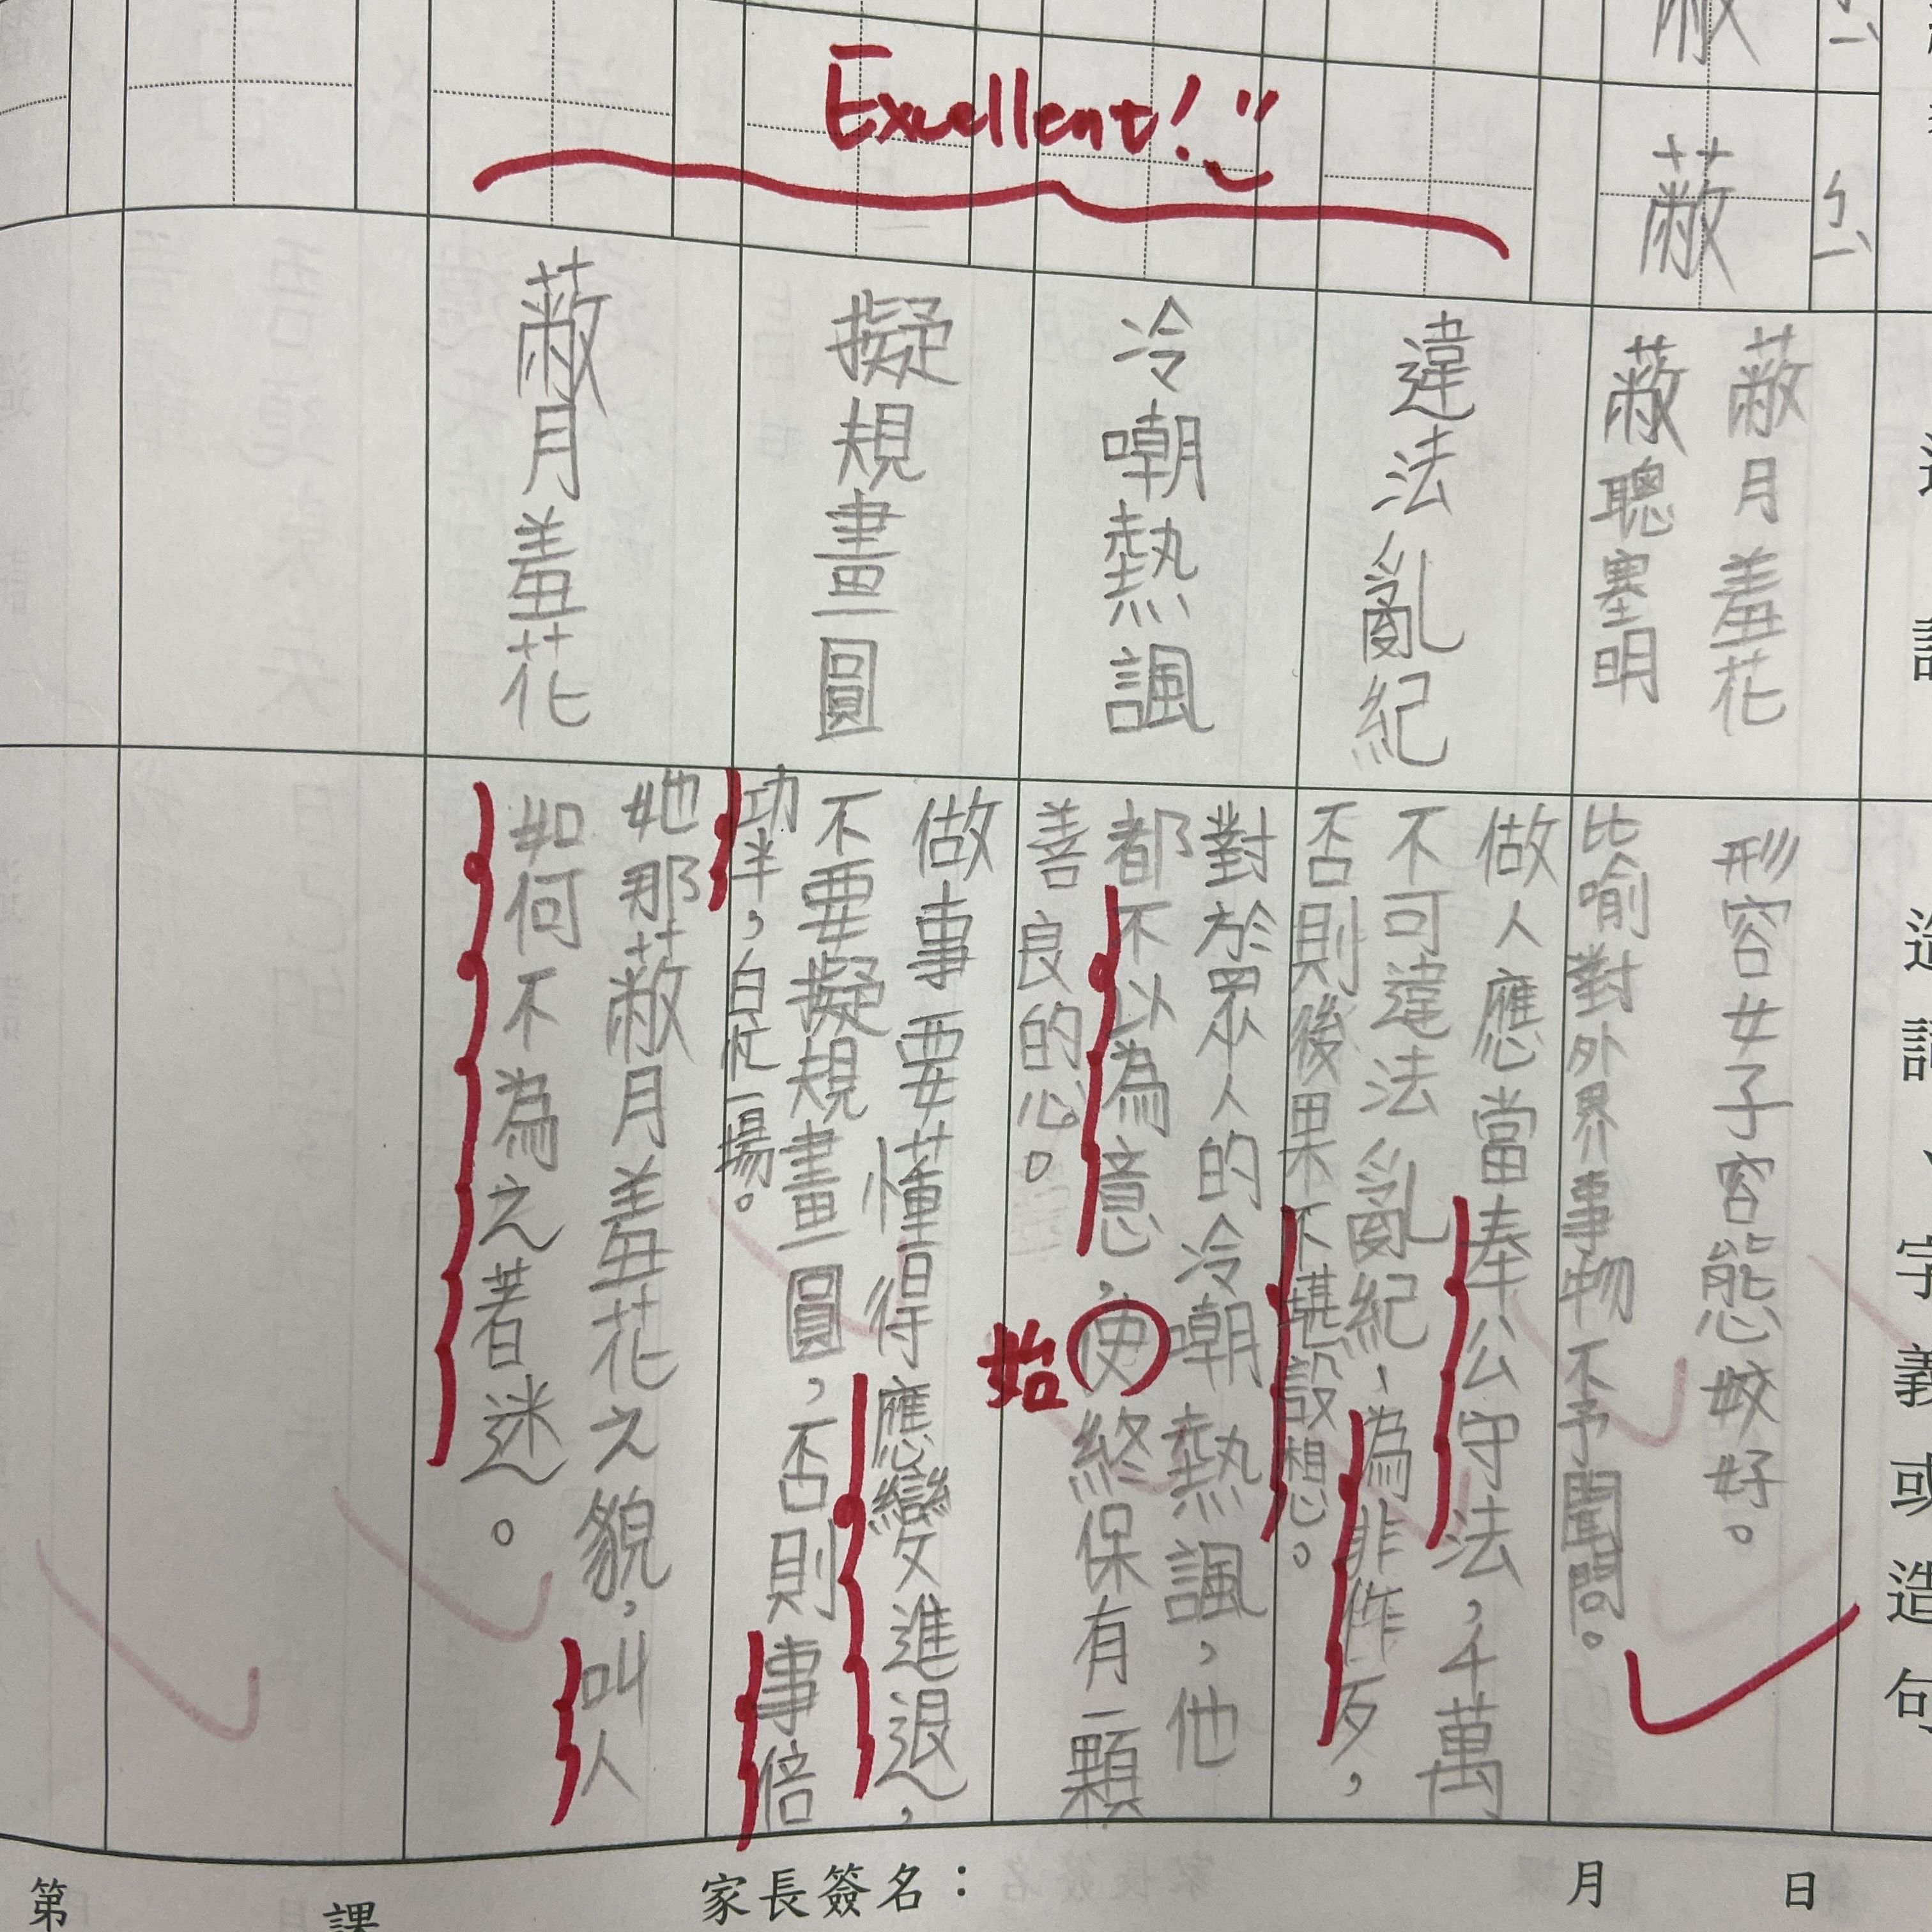 造詞、字義或造句
蔽
ㄅㄧˋ
蔽月羞花
蔽聰塞明
形容女子容態姣好。
比喻對外界事物不予聞問。
Excellent!
違法亂紀
做人應當奉公守法,千萬
不可違法亂紀、為非作歹,
否則後果不堪設想。
冷嘲熱諷
對於眾人的冷嘲熱諷,他
都不以為意,使終保有一顆
善良的心。
始
擬規畫圓
做事要懂得應變進退,
不要擬規畫圓,否則事倍
功半,白忙一場。
蔽月羞花
她那蔽月羞花之貌,叫人
如何不為之著迷。
第 課
家長簽名:
月 日